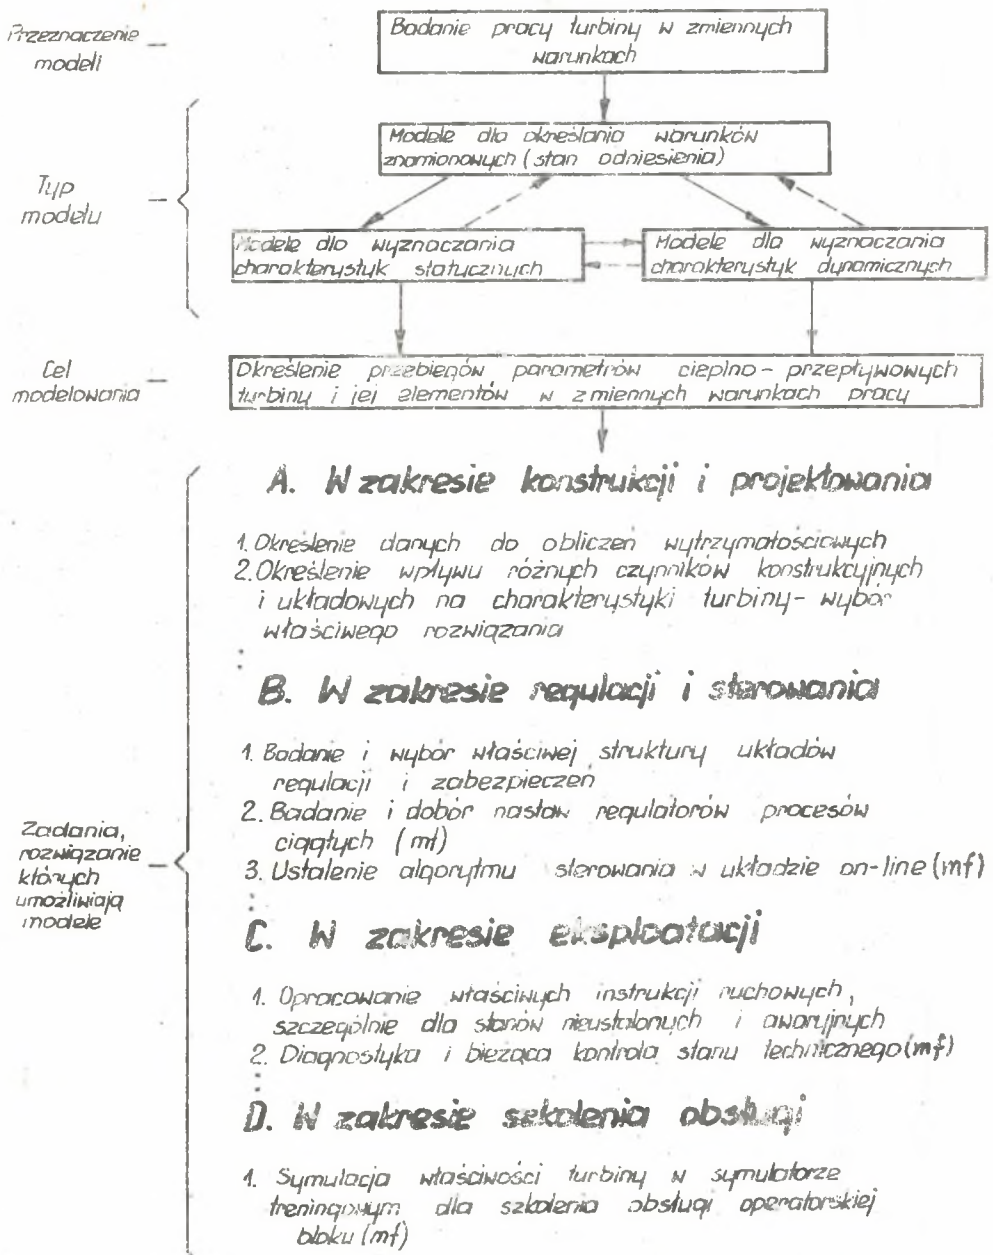 Przeznaczenie
modeli
Badanie pracy turbiny w zmiennych
warunkach
Typ
modelu
Modele dla określania warunków
znamionowych (stan odniesienia)
Modele dla wyznaczania
charakterystyk statycznych
Modele dla wyznaczania
charakterystyk dynamicznych
Cel
modelowania
Określenie przebiegów parametrów cieplno-przepływowych
turbiny i jej elementów w zmiennych warunkach pracy
Zadania,
rozwiązanie
których
umożliwiają
modele
A. W zakresie konstrukcji i projektowania
1. Określenie danych do obliczeń wytrzymałościowych
2. Określenie wpływu różnych czynników konstrukcyjnych
i układowych na charakterystyki turbiny - wybór
właściwego rozwiązania
B. W zakresie regulacji i sterowania
1. Badanie i wybór właściwej struktury układów
regulacji i zabezpieczeń
2. Badanie i dobór nastaw regulatorów procesów
ciągłych (mf)
3. Ustalenie algorytmu sterowania w układzie on-line (mf)
C. W zakresie eksploatacji
1. Opracowanie właściwych instrukcji ruchowych,
szczególnie dla stanów nieustalonych i awaryjnych
2. Diagnostyka i bieżąca kontrola stanu technicznego (mf)
D. W zakresie szkolenia obsługi
1. Symulacja właściwości turbiny w symulatorze
treningowym dla szkolenia obsługi operatorskiej
bloku (mf)